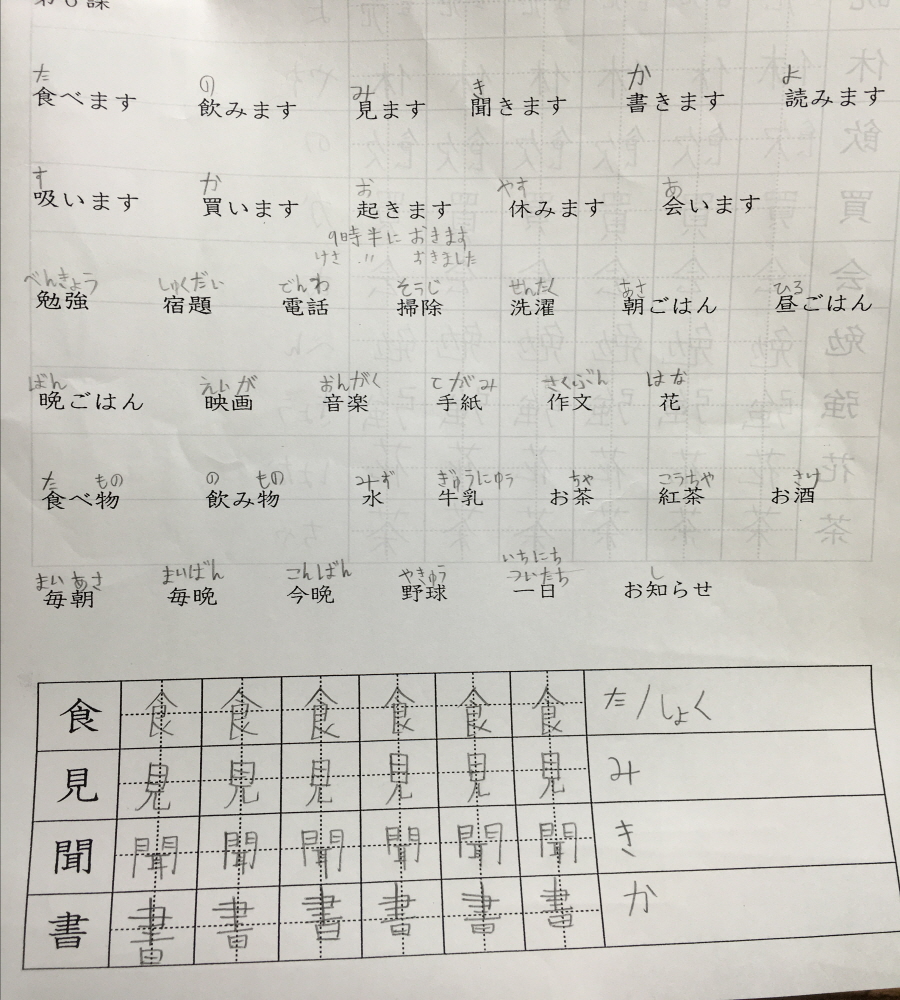 第6課
た の み き か よ
食べます 飲みます 見ます 聞きます 書きます 読みます
す か お やす あ
吸います 買います 起きます 休みます 会います
9時半に おきます
けさ 〃 おきました
べんきょう しゅくだい でんわ そうじ せんたく あさ ひる
勉強 宿題 電話 掃除 洗濯 朝ごはん 昼ごはん
ばん えいが おんがく てがみ さくぶん はな
晩ごはん 映画 音楽 手紙 作文 花
た もの の もの みず ぎゅうにゅう ちゃ こうちゃ さけ
食べ物 飲み物 水 牛乳 お茶 紅茶 お酒
いちにち
まいあさ まいばん こんばん やきゅう ついたち し
毎朝 毎晩 今晩 野球 一日 お知らせ
食 食 食 食 食 食 食 た/しょく
見 見 見 見 見 見 見 み
聞 聞 聞 聞 聞 聞 聞 き
書 書 書 書 書 書 書 か